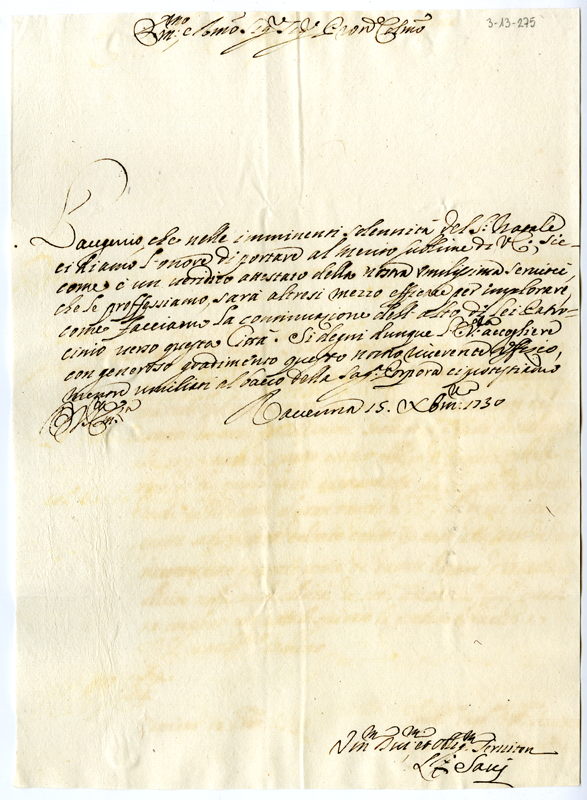 3-13-275
Em:mo e Rmo Sig.r Sig.r e Pron Colmo
L'augurio, che nelle imminenti solennità del S. Natale
ci diamo l'onore di portare al merito sublime di V. E., sic-
come è un veridico attestato della nostra umilissima servitù
che le professiamo, sarà altresì mezzo efficace per implorare,
come facciamo la continuazione dell'alto di Lei Patro-
cinio verso questa Città. Si degni dunque l'E. V. accogliere
con generoso gradimento questo nostro riverente Uffizio,
mentre umiliati al bacio della Sag. Porpora ci protestiamo
Di V. Em.
Ravenna 15. Xbre 1730
Um Div et Oblig Servitori
Li Savj